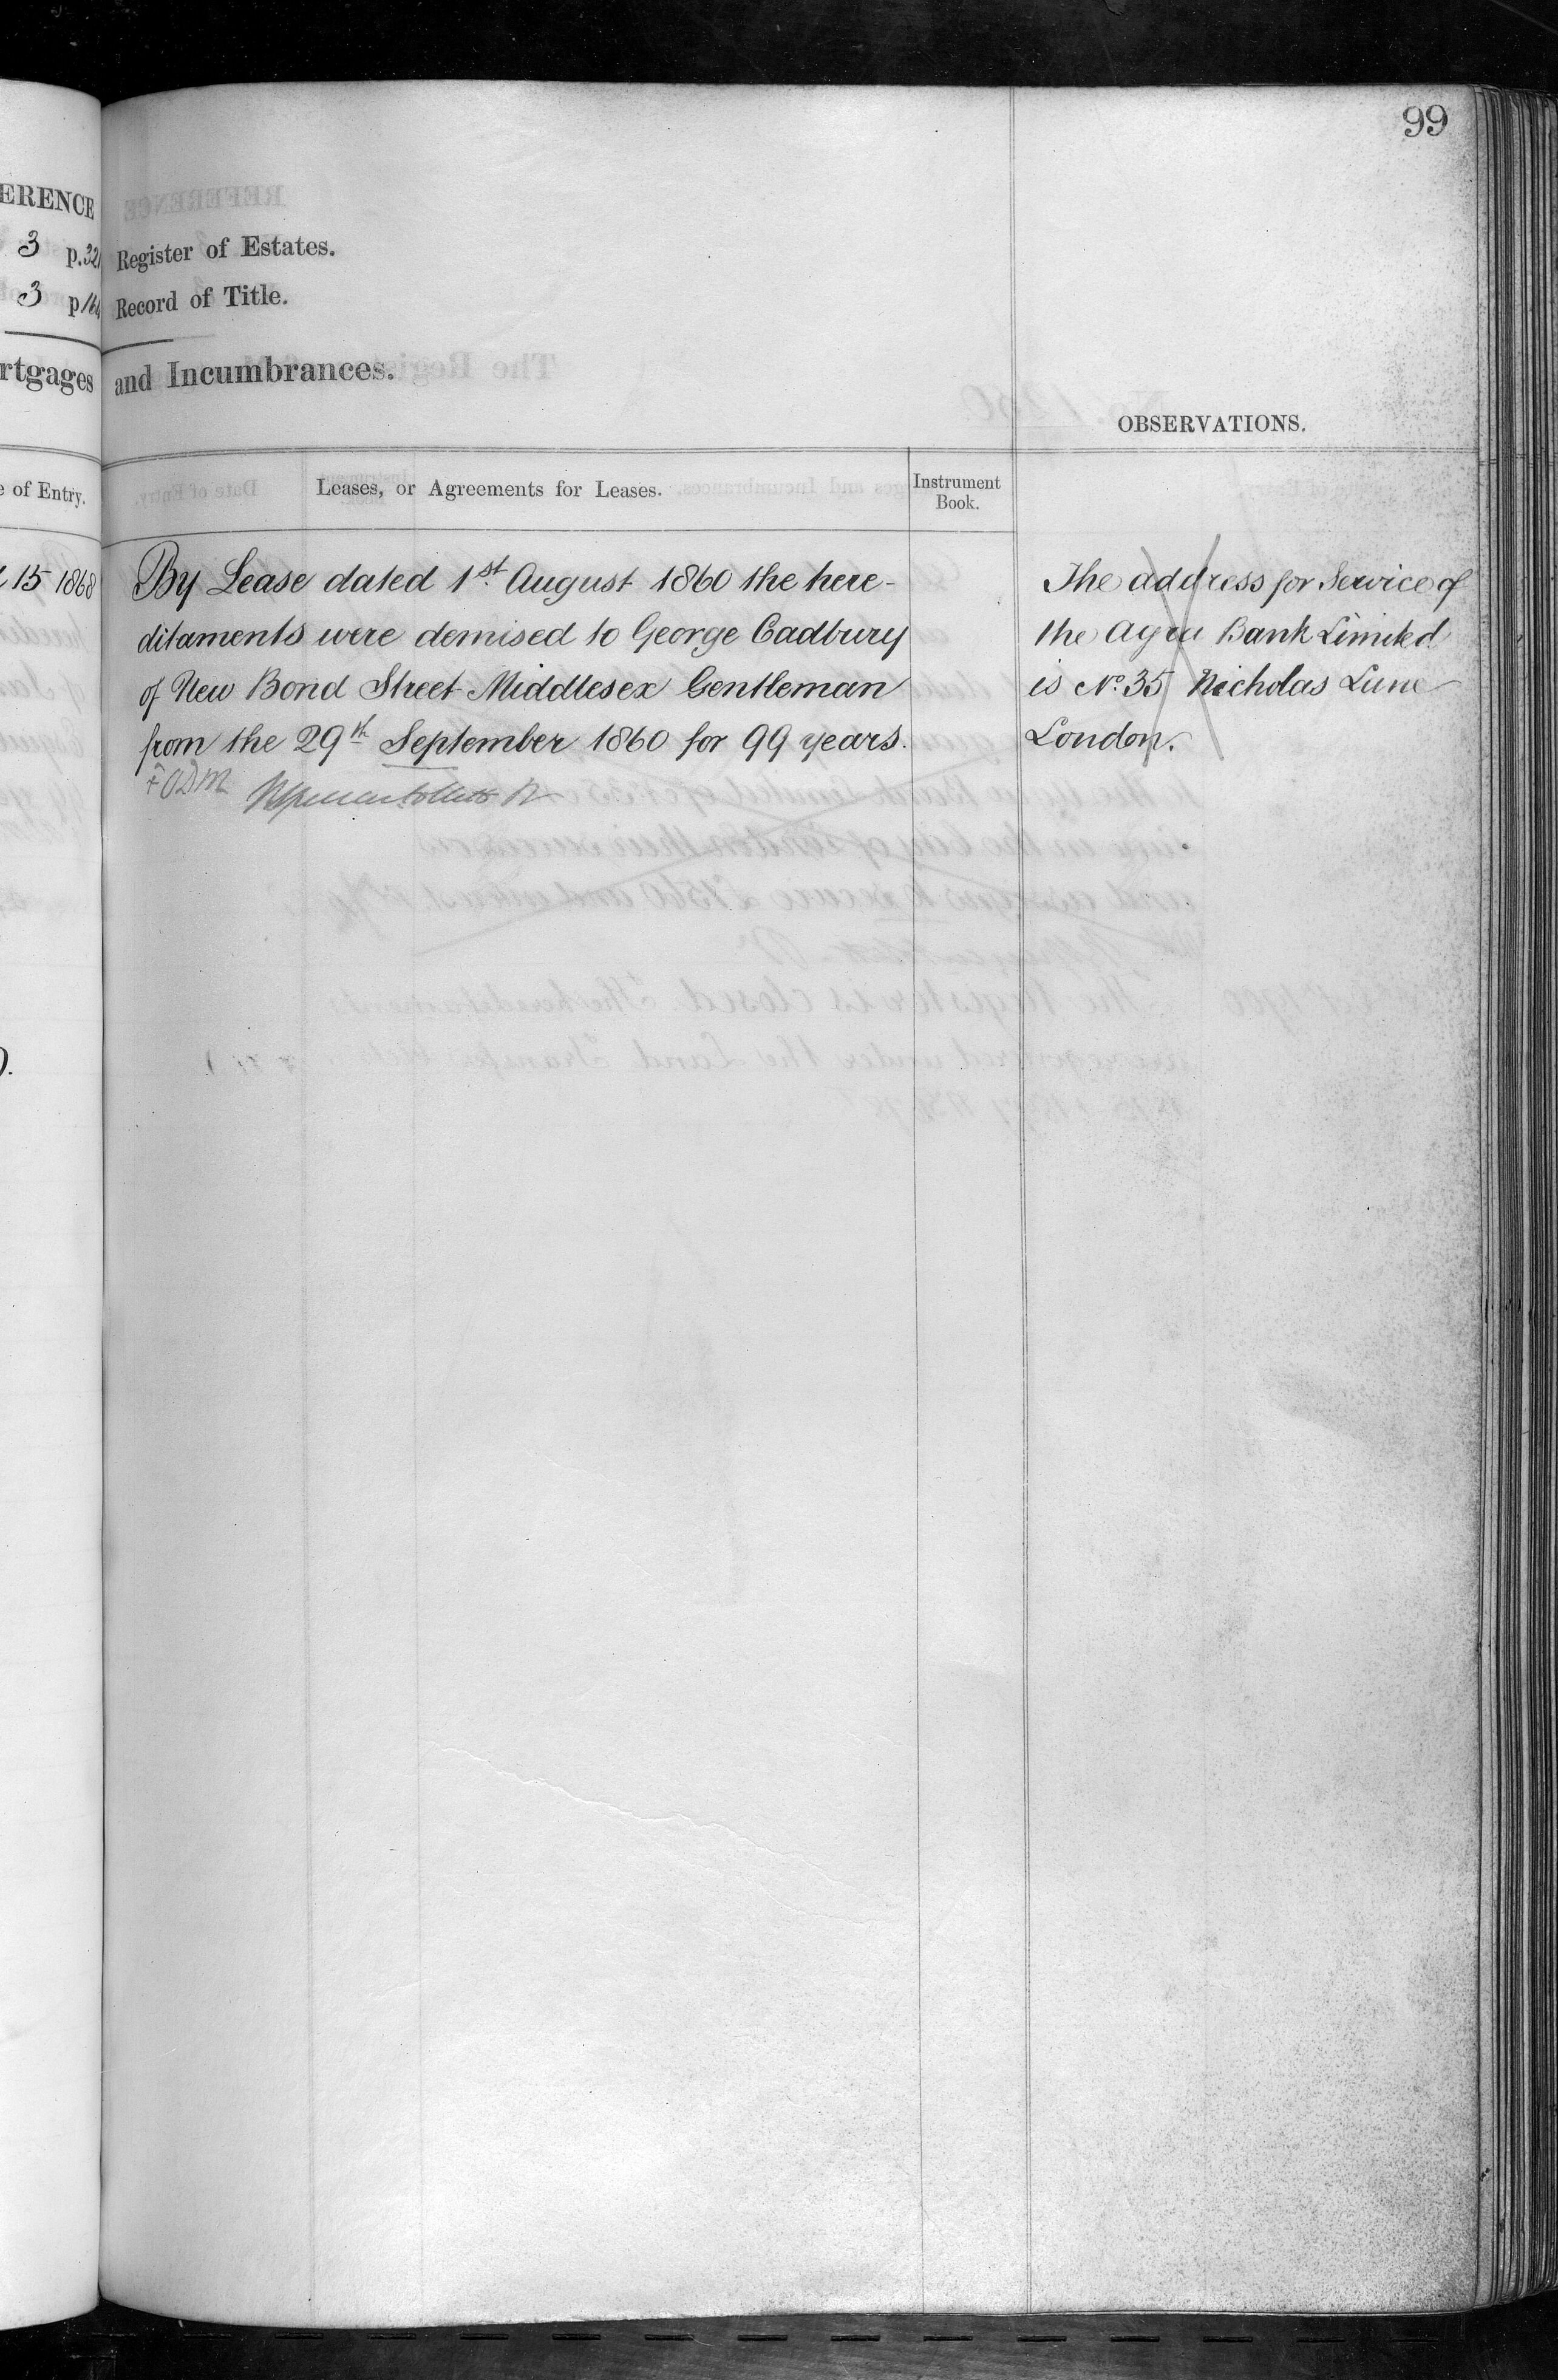 99
ERENCE
3 p.32
Register of Estates.
3 p
Record of Title.
rtgages
and Incumbrances.
OBSERVATIONS.
e of Entry.
Leases, or Agreements for Leases.
Instrument
Book.
15 1868
By Lease dated 1st August 1860 the here-
ditaments were demised to George Cadbury
of New Bond Street Middlesex Gentleman
from the 29th September 1860 for 99 years.
The address for Service of
the Agra Bank Limited
is No. 35 Nicholas Lane
London.